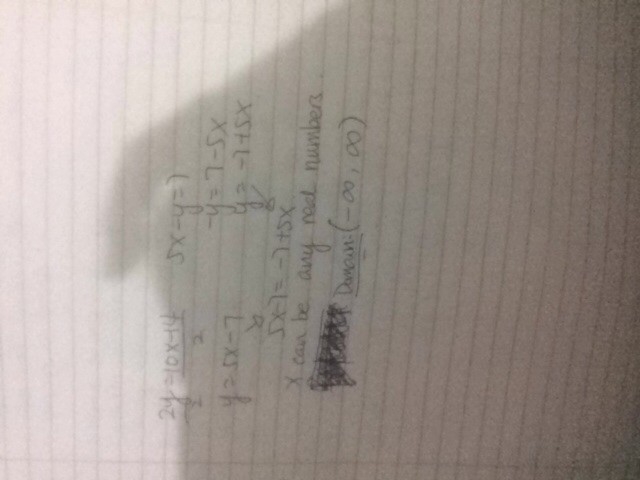 2y = 10x-14 5x-y=7
2 2
-y = 7-5x
y = 5x-7 y = -7+5x
5x-7 = -7+5x
x can be any real numbers.
Domain: (-∞, ∞)